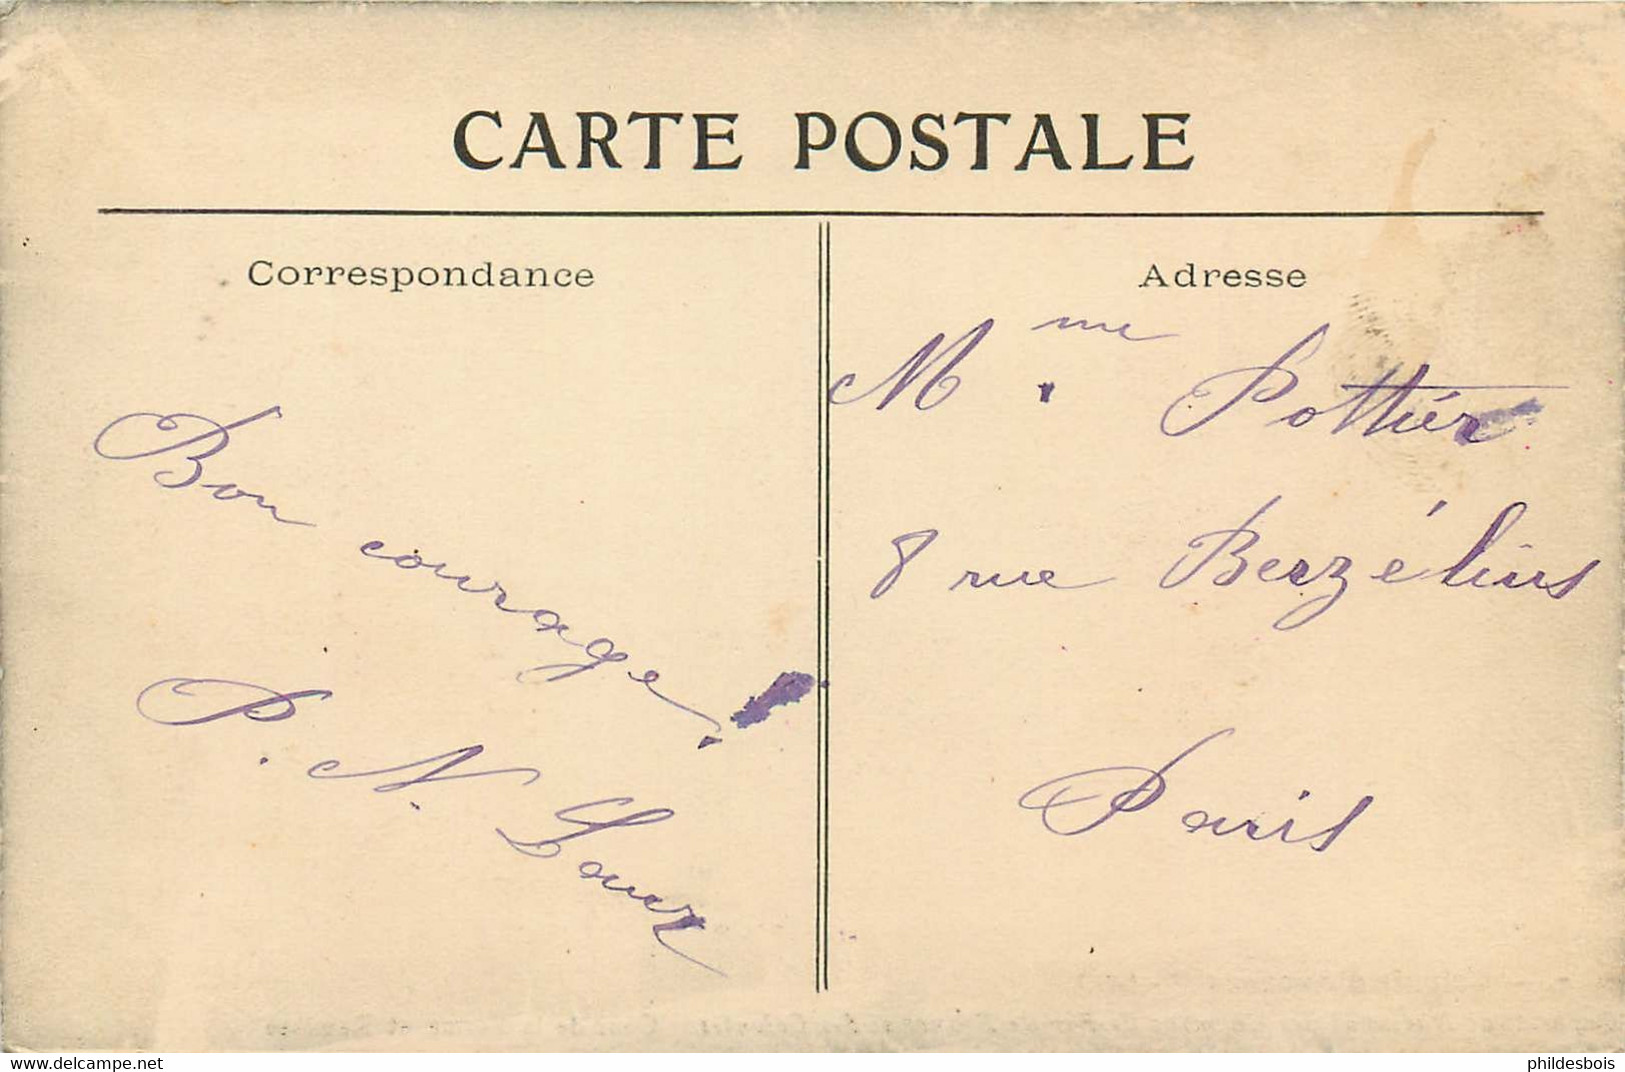 CARTE POSTALE
Correspondance
Bon courage!
P. N.
Adresse
Mme. Pottier
8 rue Berzélius
Paris
phildesbois